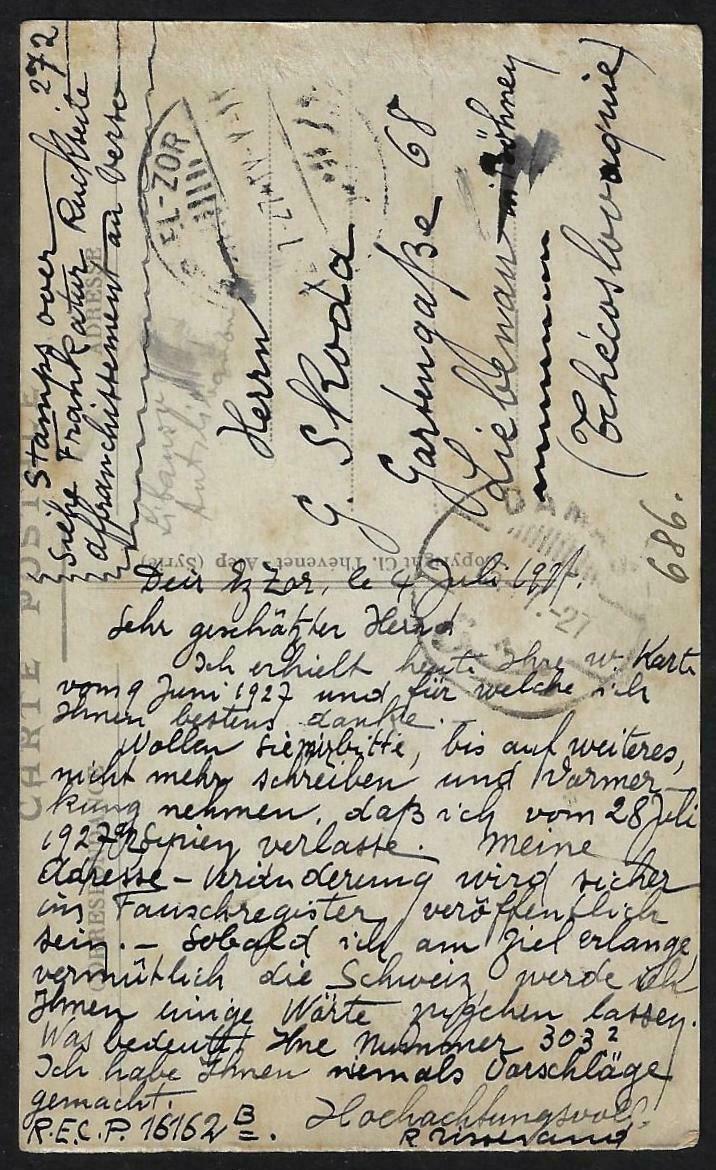 272
Stamps over
Siehe Frankatur Rückseite
affranchissement au verso
CARTE POSTALE
ADRESSE
CORRESPONDANCE
EL-ZOR
Herrn
G. Skoda
Gartengaße 68
Liebenau in Böhmen
(Tchécoslovaquie)
686.
DAMAS
-27
Copyright Cl. Thévenet - Alep (Syrie)
Deir Ez Zor, le 4 Juli 1927.
Sehr geschätzter Herr
Ich erhielt heute Ihre w. Karte
vom 9 Juni 1927 und für welche ich
Ihnen bestens danke.
Wollen Sie mir bitte, bis auf weiteres,
nicht mehr schreiben und Vormer-
kung nehmen, daß ich vom 28 Juli
1927 Syrien verlasse. Meine
Adresse-Veränderung wird sicher
ins Tauschregister veröffentlich
sein. - Sobald ich am Ziel erlange,
vermütlich die Schweiz werde ich
Ihnen einige Wörte zugehen lassen.
Was bedeutet Ihne Nummer 303?
Ich habe Ihnen niemals Vorschläge
gemacht.
Hochachtungsvoll
R.E.C.P. 16162 B.